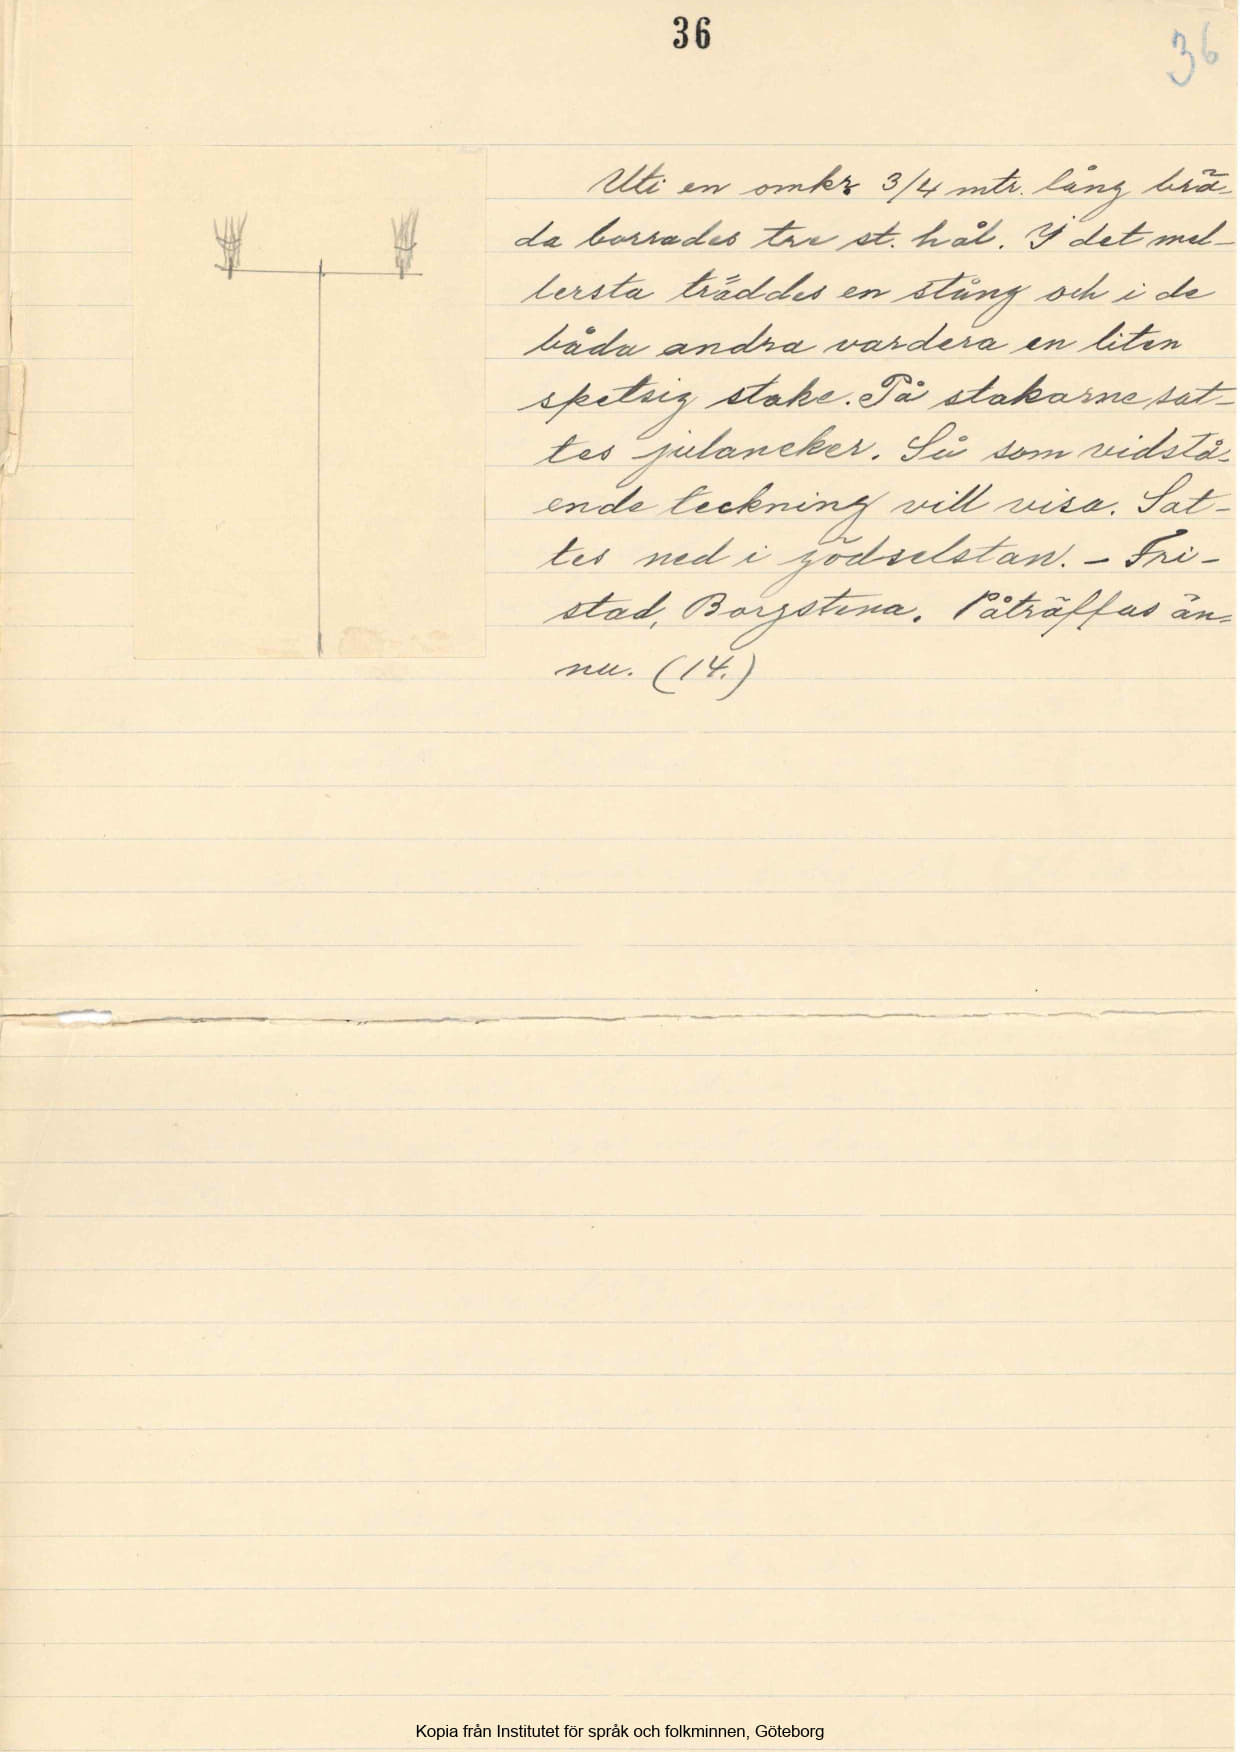 36
36
Uti en omkr 3/4 mtr. lång brä-
da borrades tre st. hål. I det mel-
lersta träddes en stång och i de
båda andra vardera en liten
spetsig stake. På stakarne sat-
tes julaneker. Så som vidstå-
ende teckning vill visa. Sat-
tes ned i gödselstan. - Fri-
stad, Borgstena. Påträffas än-
nu. (14.)
Kopia från Institutet för språk och folkminnen, Göteborg